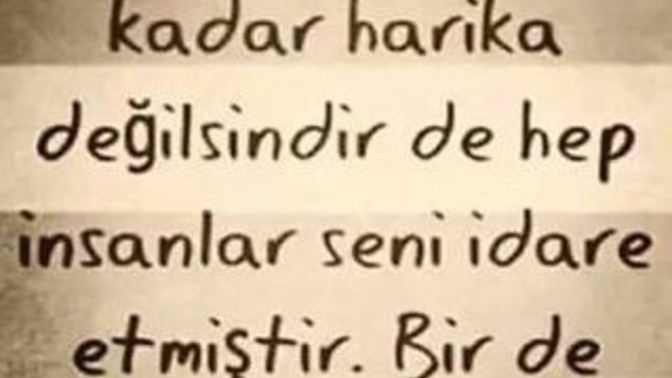 kadar harika
değilsindir de hep
insanlar seni idare
etmiştir. Bir de